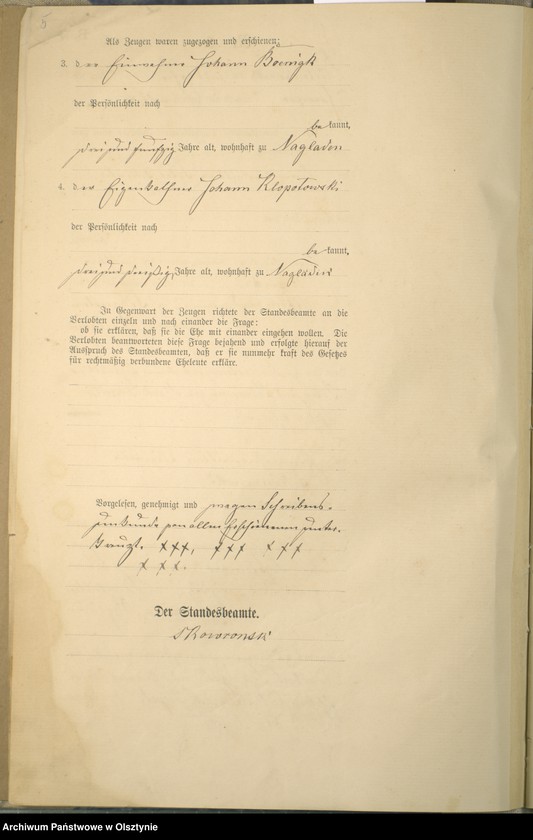 5
Als Zeugen waren zugezogen und erschienen:
3. der Einwohner Johann Boenigk
der Persönlichkeit nach
bekannt,
drei und fünfzig Jahre alt, wohnhaft zu Nagladen
4. der Eigenkäthner Johann Klopotowski
der Persönlichkeit nach
bekannt,
drei und dreißig Jahre alt, wohnhaft zu Nagladen
In Gegenwart der Zeugen richtete der Standesbeamte an die
Verlobten einzeln und nach einander die Frage:
ob sie erklären, daß sie die Ehe mit einander eingehen wollen. Die
Verlobten beantworteten diese Frage bejahend und erfolgte hierauf der
Ausspruch des Standesbeamten, daß er sie nunmehr kraft des Gesetzes
für rechtmäßig verbundene Eheleute erkläre.
Vorgelesen, genehmigt und wegen Schreibens-
unkunde von allen Erschienenen unter-
kreuzt. XXX, XXX XXX
XXX.
Der Standesbeamte.
Skowronski
Archiwum Państwowe w Olsztynie